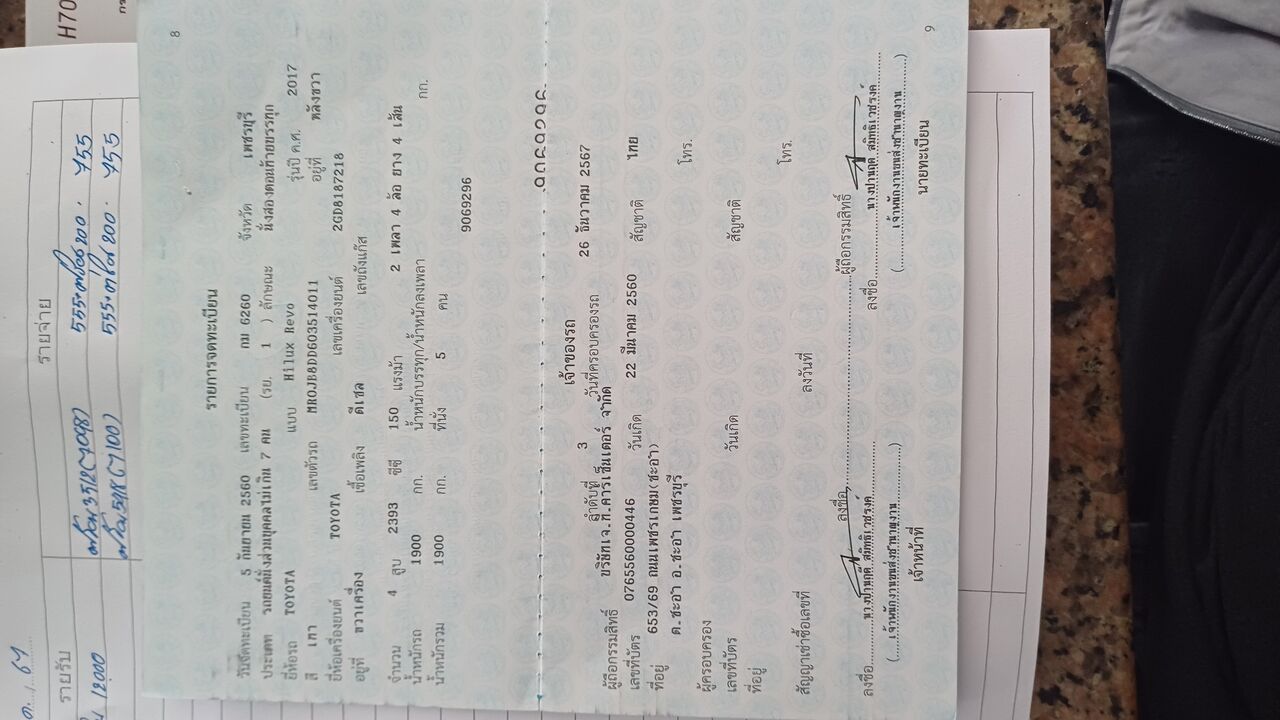 8
รายการจดทะเบียน
วันจดทะเบียน 5 กันยายน 2560 เลขทะเบียน กม 6260 จังหวัด เพชรบุรี
ประเภท รถยนต์นั่งส่วนบุคคลไม่เกิน 7 คน (รย. 1 ) ลักษณะ นั่งสองตอนท้ายบรรทุก
ยี่ห้อรถ TOYOTA แบบ Hilux Revo รุ่นปี ค.ศ. 2017
สี เทา เลขตัวรถ MR0JB8DD603514011 อยู่ที่ หลังขวา
ยี่ห้อเครื่องยนต์ TOYOTA เลขเครื่องยนต์ 2GD8187218
อยู่ที่ ขวาเครื่อง เชื้อเพลิง ดีเซล เลขถังแก๊ส
จำนวน 4 สูบ 2393 ซีซี 150 แรงม้า 2 เพลา 4 ล้อ ยาง 4 เส้น
น้ำหนักรถ 1900 กก. น้ำหนักบรรทุก/น้ำหนักลงเพลา กก.
น้ำหนักรวม 1900 กก. ที่นั่ง 5 คน
9069296
9069296
เจ้าของรถ
ลำดับที่ 3 วันที่ครอบครองรถ 26 ธันวาคม 2567
ผู้ถือกรรมสิทธิ์ บริษัทเจ.ที.คาร์เซ็นเตอร์ จำกัด
เลขที่บัตร 0765560000446 วันเกิด 22 มีนาคม 2560 สัญชาติ ไทย
ที่อยู่ 653/69 ถนนเพชรเกษม(ชะอำ)
ต.ชะอำ อ.ชะอำ เพชรบุรี โทร.
ผู้ครอบครอง
เลขที่บัตร วันเกิด สัญชาติ
ที่อยู่
โทร.
สัญญาเช่าซื้อเลขที่ ลงวันที่
ลงชื่อ ผู้ถือกรรมสิทธิ์
ลงชื่อ ลงชื่อ
(เจ้าพนักงานขนส่งชำนาญงาน) (เจ้าพนักงานขนส่งชำนาญงาน)
เจ้าหน้าที่ นายทะเบียน
9
H70
รายรับ
รายจ่าย
12000